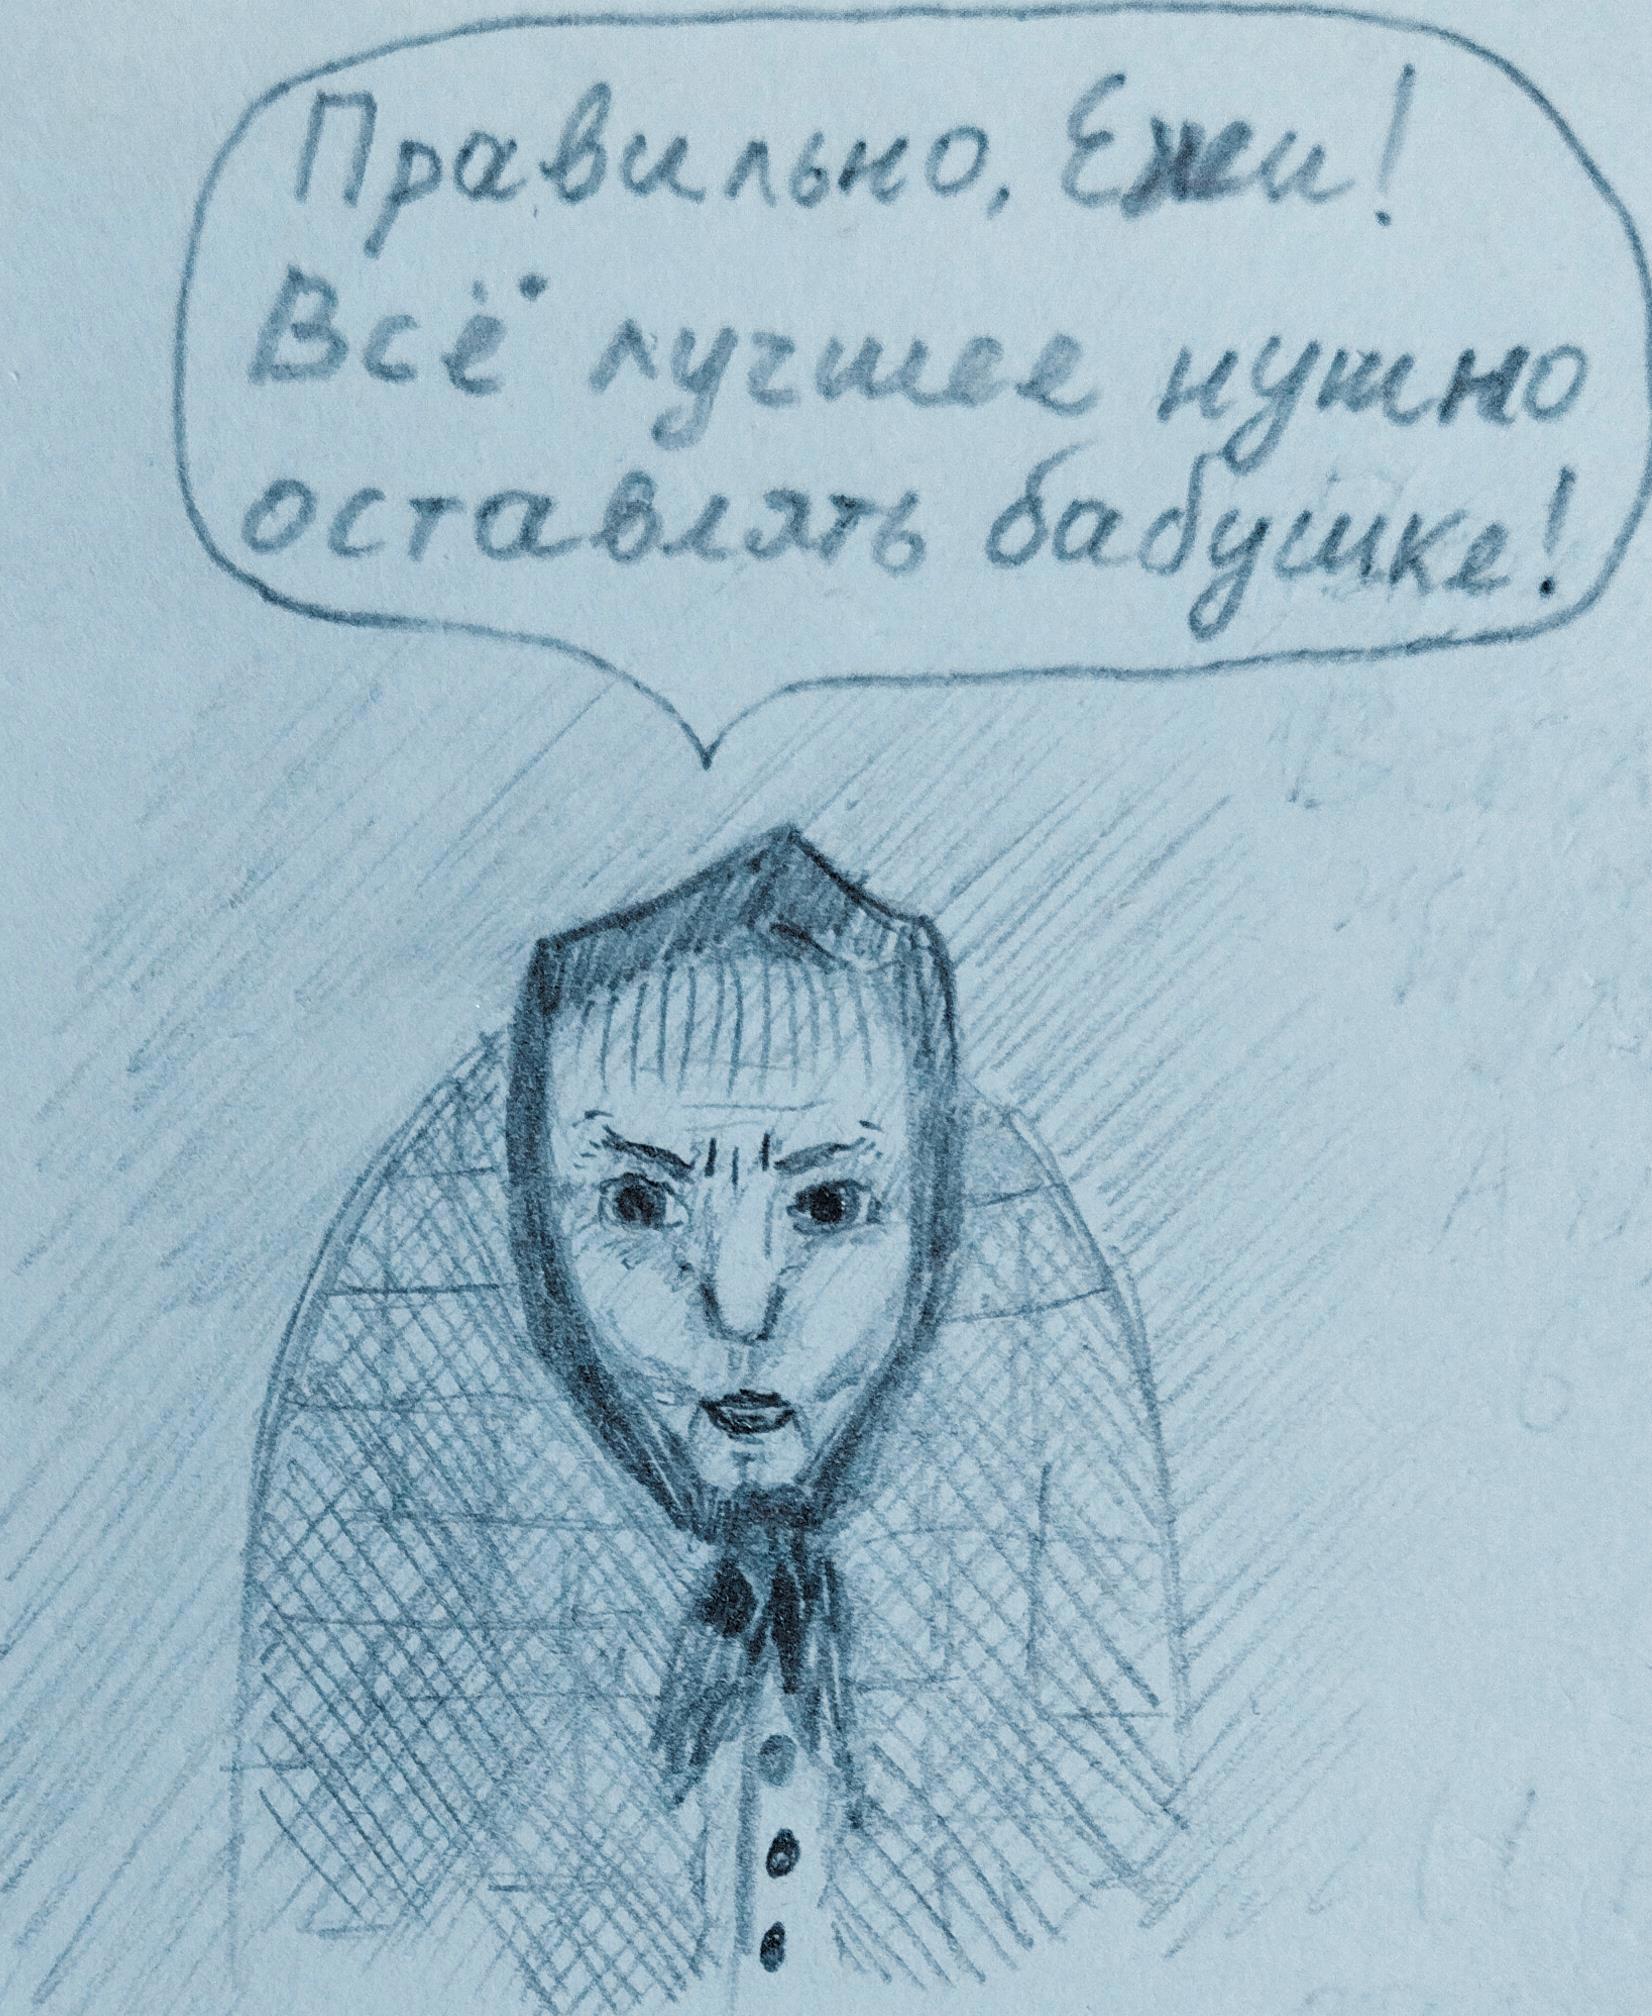 Правильно, Ежи!
Всё лучшее нужно
оставлять бабушке!